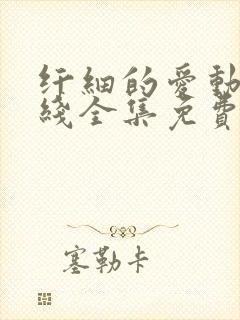 纤細的爱動
綫全集免費
塞勒卡